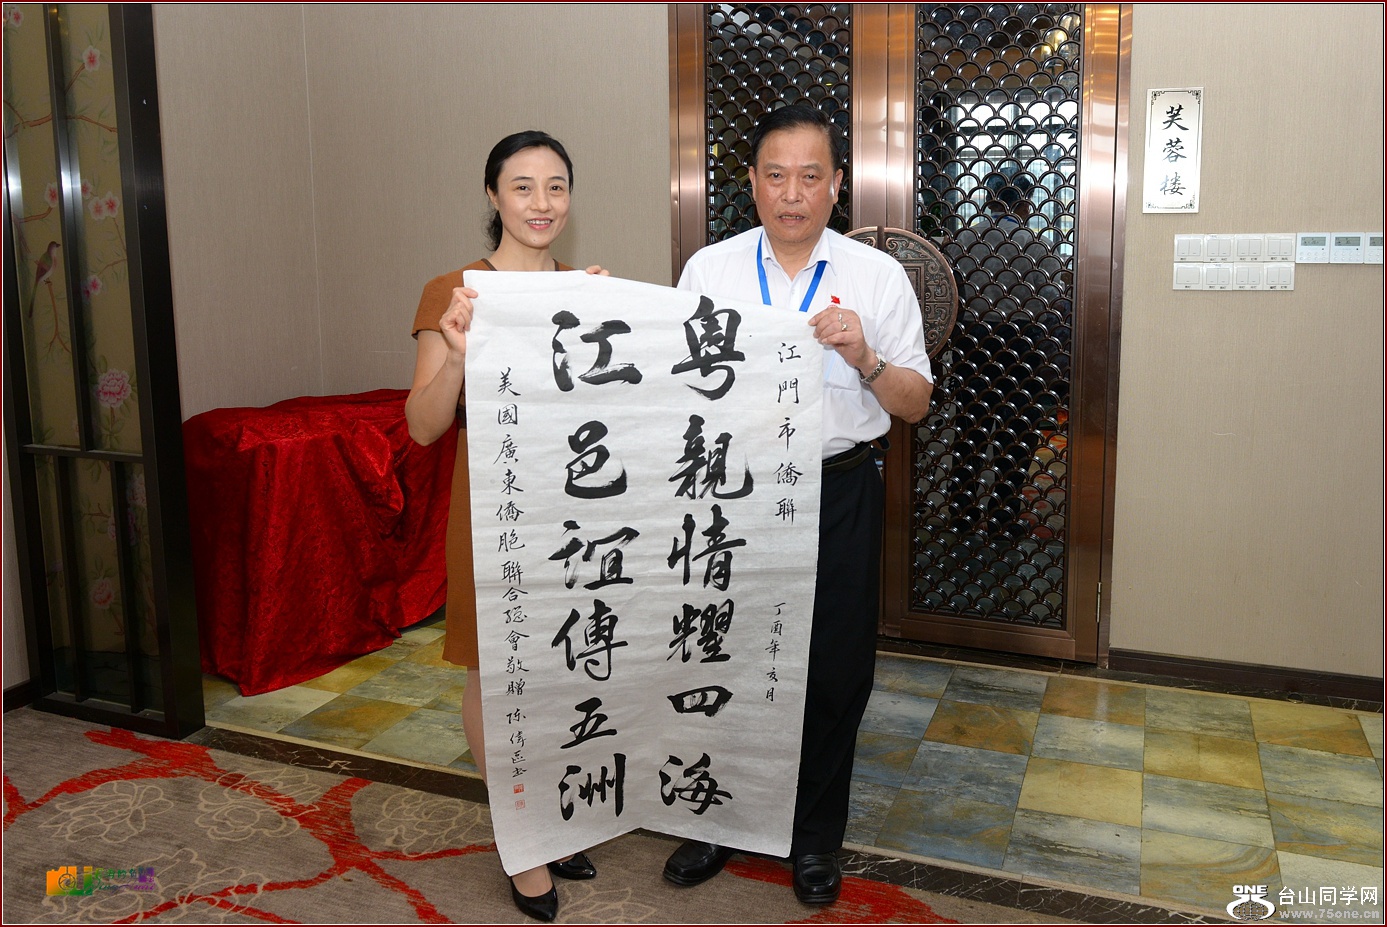 江門市僑聯
丁酉年亥月
粤親情耀四海
江邑誼傳五洲
美國廣東僑胞聯合総會敬贈
陈偉巨书
芙蓉楼
ONE 台山同学网
www.75one.cn